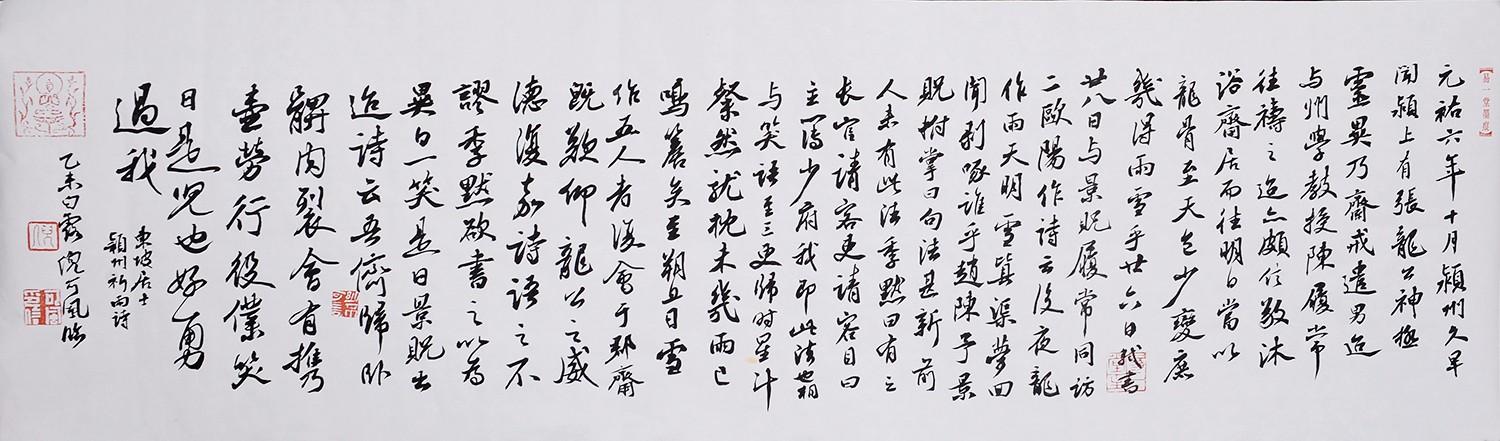 易一堂墨痕
元祐六年十月潁州久旱
聞潁上有張龍公神極
靈異乃齋戒遣男迨
与州學教授陳履常
往禱之迨亦頗信敬沐
浴齋居而往明日當以
龍骨至天色少變庶
幾得雨雪乎廿六日軾書
廿八日与景貺履常同訪
二歐陽作詩云後夜龍
作雨天明雪填渠夢回
聞剥啄誰乎趙陳予景
貺拊掌曰句法甚新前
人未有此法季默曰有之
長官請客吏請客目曰
主簿少府我即此法也相
与笑語至三更歸时星斗
粲然就枕未幾雨已
鳴簷矣至朔旦日雪
作五人者復會于郡齋
既歎仰龍公之威
德復嘉詩語之不
謬季默欲書之以為
異日一笑是日景貺出
迨詩云吾儕歸卧
髀肉裂會有攜
壺勞行役僕笑
曰是児也好勇
過我
東坡居士
潁州祈雨詩
乙未白露倪可風臨